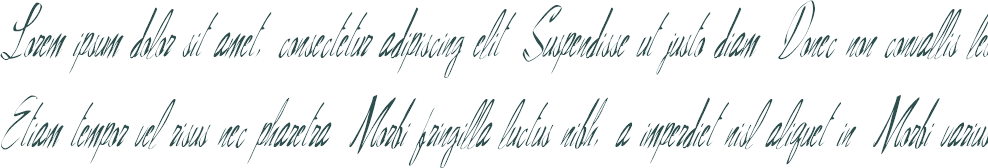 Lorem ipsum dolor sit amet, consectetur adipiscing elit Suspendisse ut justo diam Donec non convallis leo
Etiam tempor vel risus nec pharetra Morbi fringilla luctus nibh, a imperdiet nisl aliquet in Morbi varius